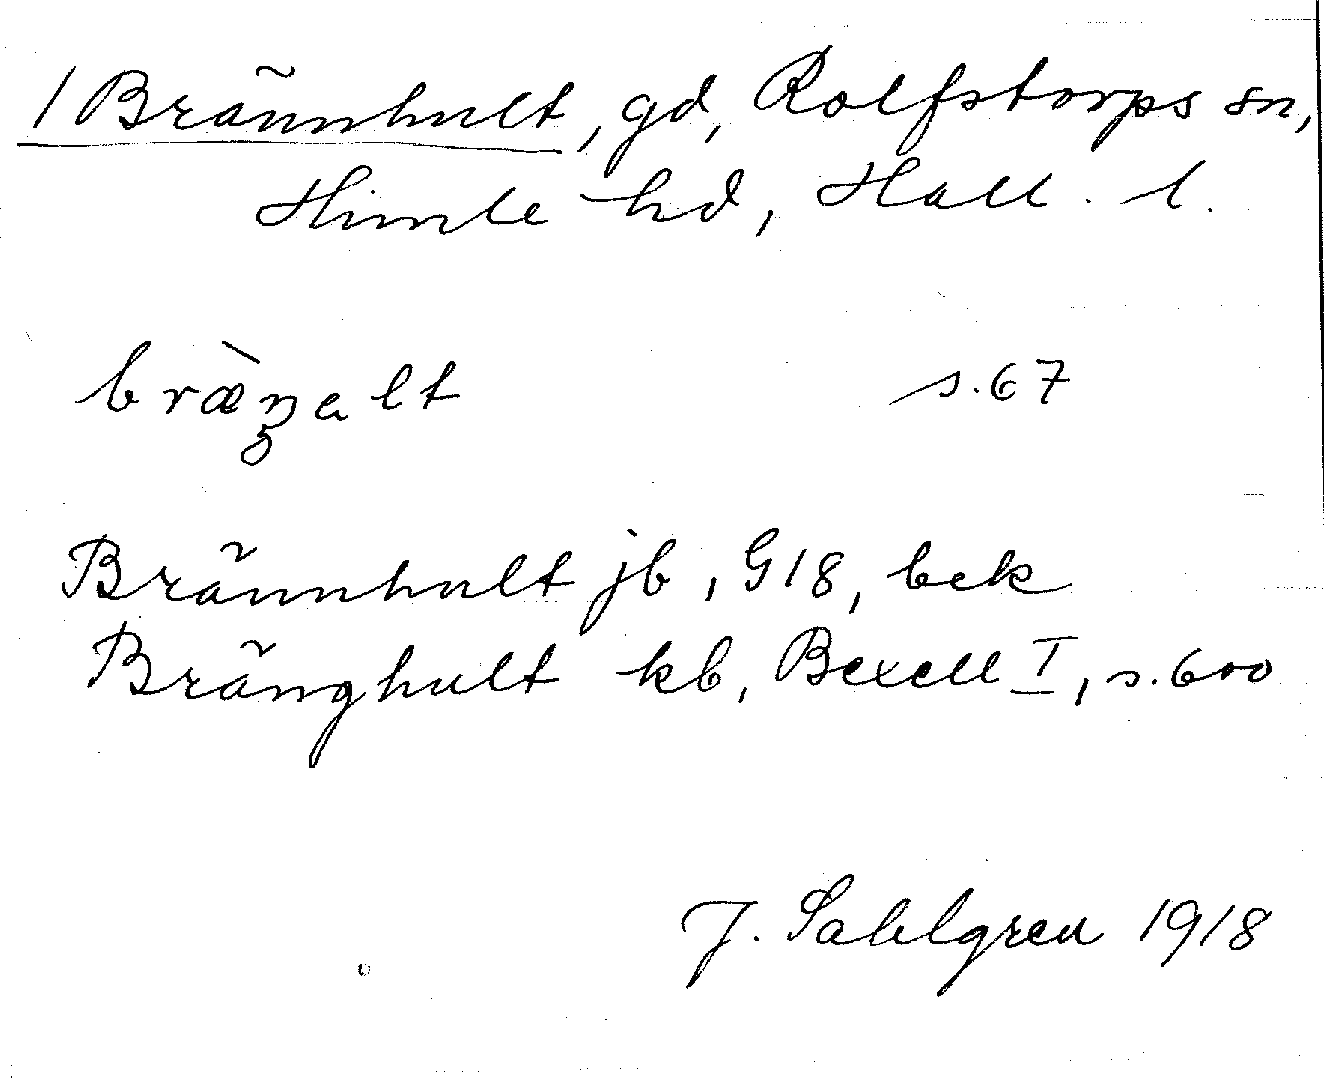 1 Brännhult, gd, Rolfstorps sn,
Himle hd, Hall. l.
bræ̀n̥alt s. 67
Brännhult jb, G18, bek
Bränghult kb, Bexell I, s. 600
J. Sahlgren 1918